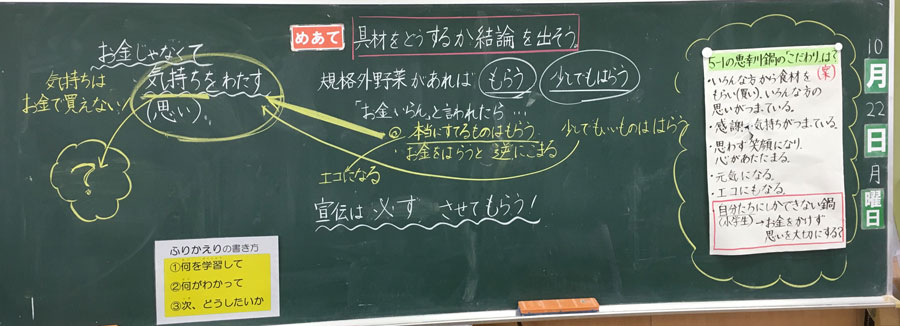 めあて
具材をどうするか結論を出そう。
お金じゃなくて
気持ちをわたす
(思い)
気持ちは
お金で買えない!
?
規格外野菜があれば もらう 少しでもはらう
「お金いらん」と言われたら…
本当にすてるものはもらう 少しでもいいものははらう
・お金をはらうと逆にこまる
エコになる
宣伝は 必ず させてもらう!
ふりかえりの書き方
①何を学習して
②何がわかって
③次、どうしたいか
5-1の忠幸川鍋の"こだわり"は?
(案)
・いろんな方から食材を
もらい(買い)、いろんな方の
思いがつまっている。
・感謝の気持ちがつまっている。
・思わず笑顔になり
心があたたまる。
・元気になる。
・エコにもなる。
自分たちにしかできない鍋
(小学生)→お金をかけず
思いを大切にする?
10
月
22
日
月
曜日